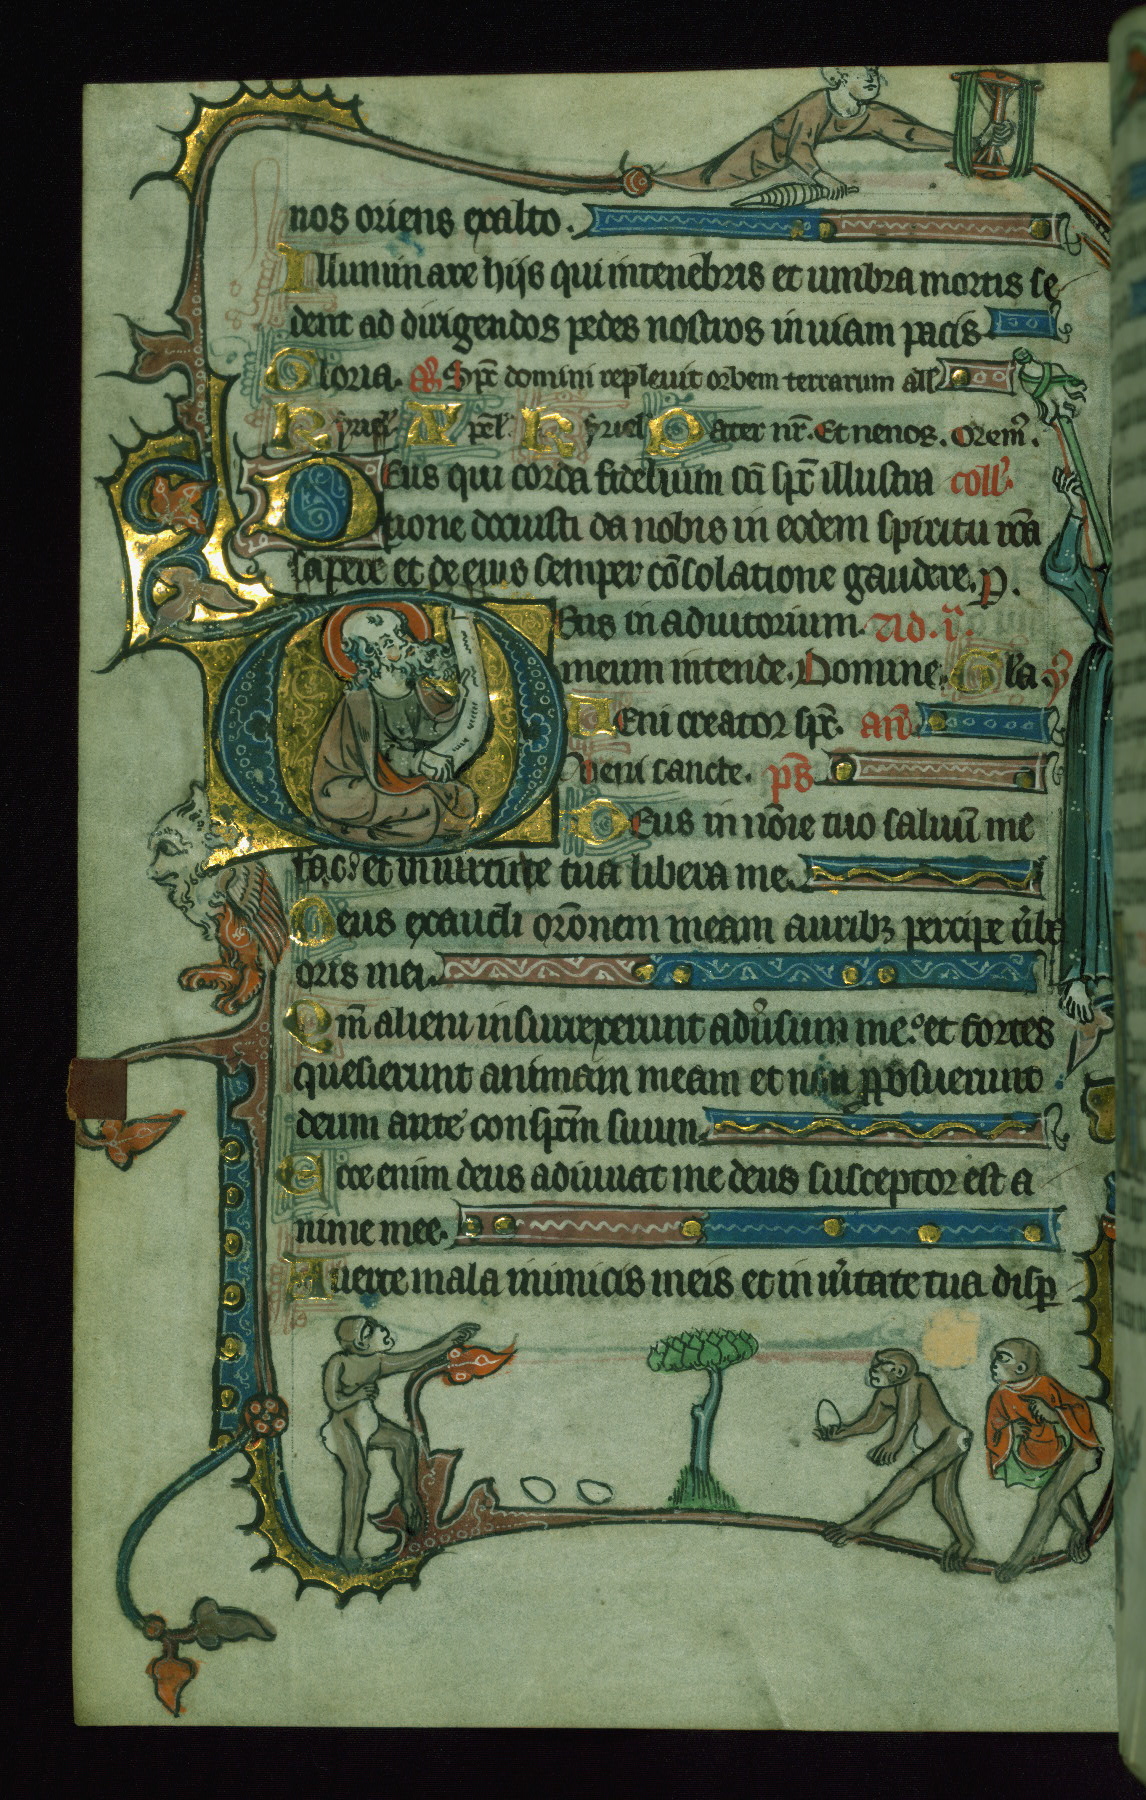 nos oriens exalto.
Illuminare hijs qui in tenebris et umbra mortis se
dent ad dirigendos pedes nostros in uiam pacis
Gloria. añ Spc̄ domini repleuit orbem terrarum all'
Kyriel' Xpel' Kyriel' Pater nr̄. Et ne nos. Orem'.
Deus qui corda fidelium sc̄i spc̄ illustra coll'.
tione docuisti da nobis in eodem spiritu rc̄a
sapere et de eius semper cōsolatione gaudere. p.
Deus in adiutorium. Ad .ja.
meum intende. Domine. Gla
Veni creator spc̄. añ
Veni sancte. ps̄
Deus in nōie tuo saluū me
fac: et in uirtute tua libera me.
Deus exaudi orōnem meam auribꝫ percipe ūba
oris mei.
Qm̄ alieni insurrexerunt adūsum me: et fortes
quesierunt animam meam et non pposuerunt
deum ante conspc̄m suum.
Ecce enim deus adiuuat me deus susceptor est a
nime mee.
Auerte mala inimicis meis et in ūitate tua disp